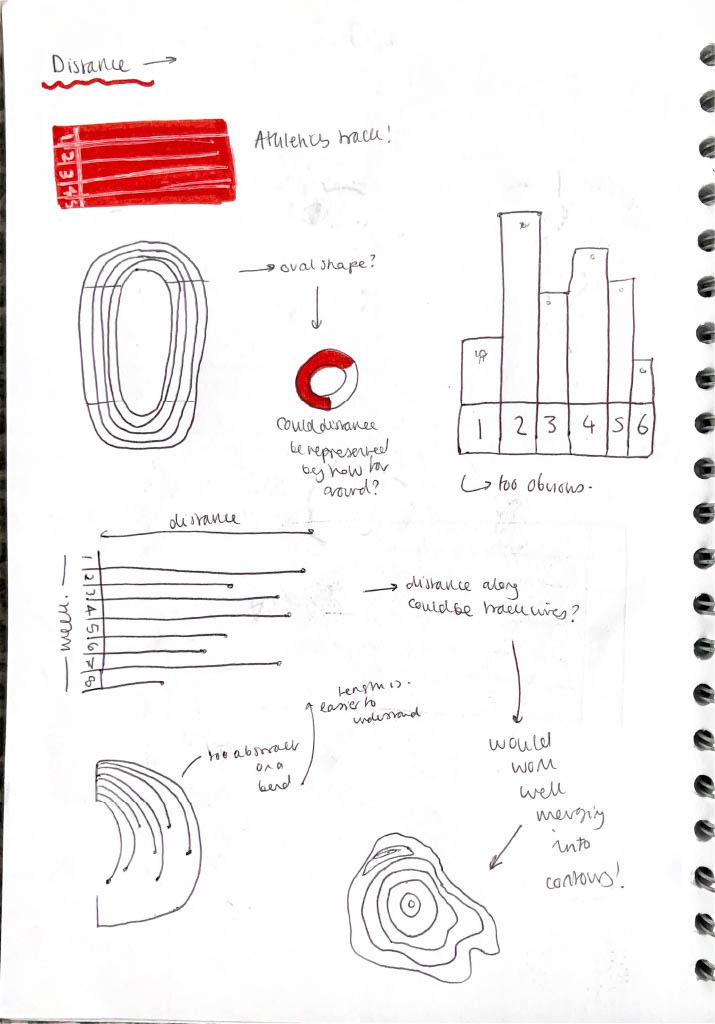 Distance →
1 2 3 4 5
Athletics track!
→ oval shape?
Could distance
be represented
by how far
around?
1 2 3 4 5 6
↳ too obvious.
distance
week.
1 2 3 4 5 6 7 8
→ distance along
could be track lines?
Length is.
easier to
understand
too abstract
on a
bend
would
work
well
merging
into
contours!